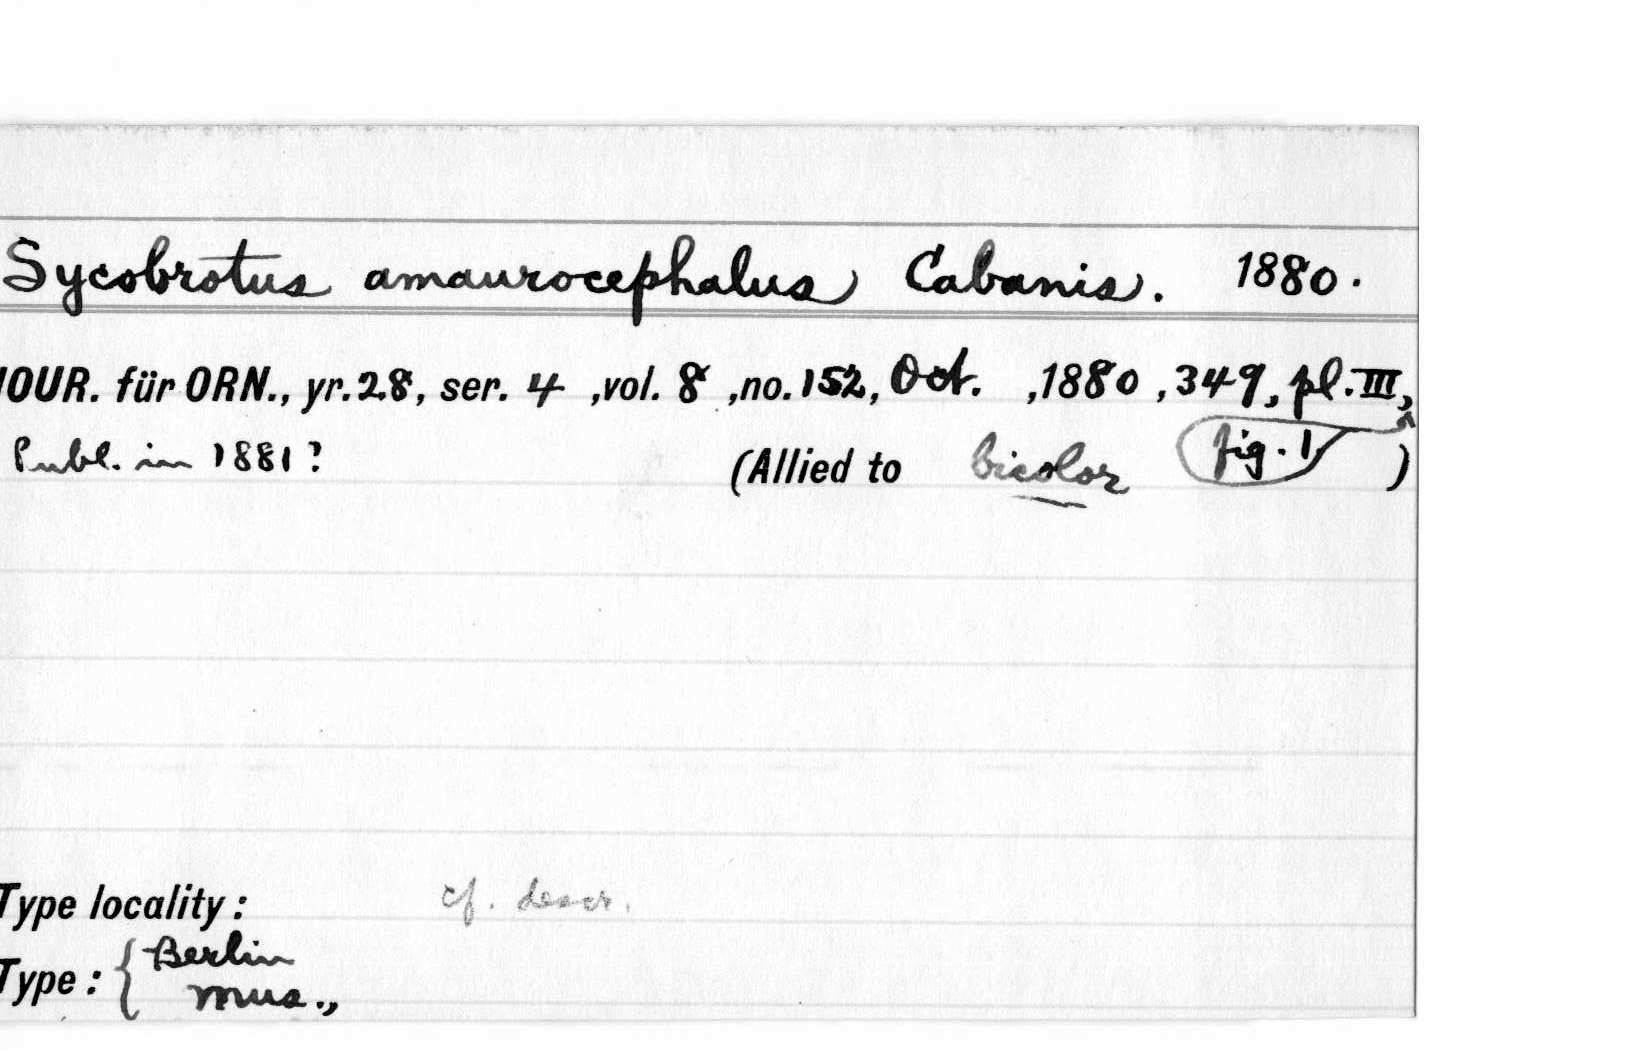 Sycobrotus amaurocephalus Cabanis. 1880.
JOUR. für ORN., yr. 28, ser. 4 ,vol. 8 ,no. 152, Oct. ,1880 ,349, pl. III,
Publ. in 1881? (Allied to bicolor fig. 1, )
Type locality: cf. descr.
Type: { Berlin
Mus.,